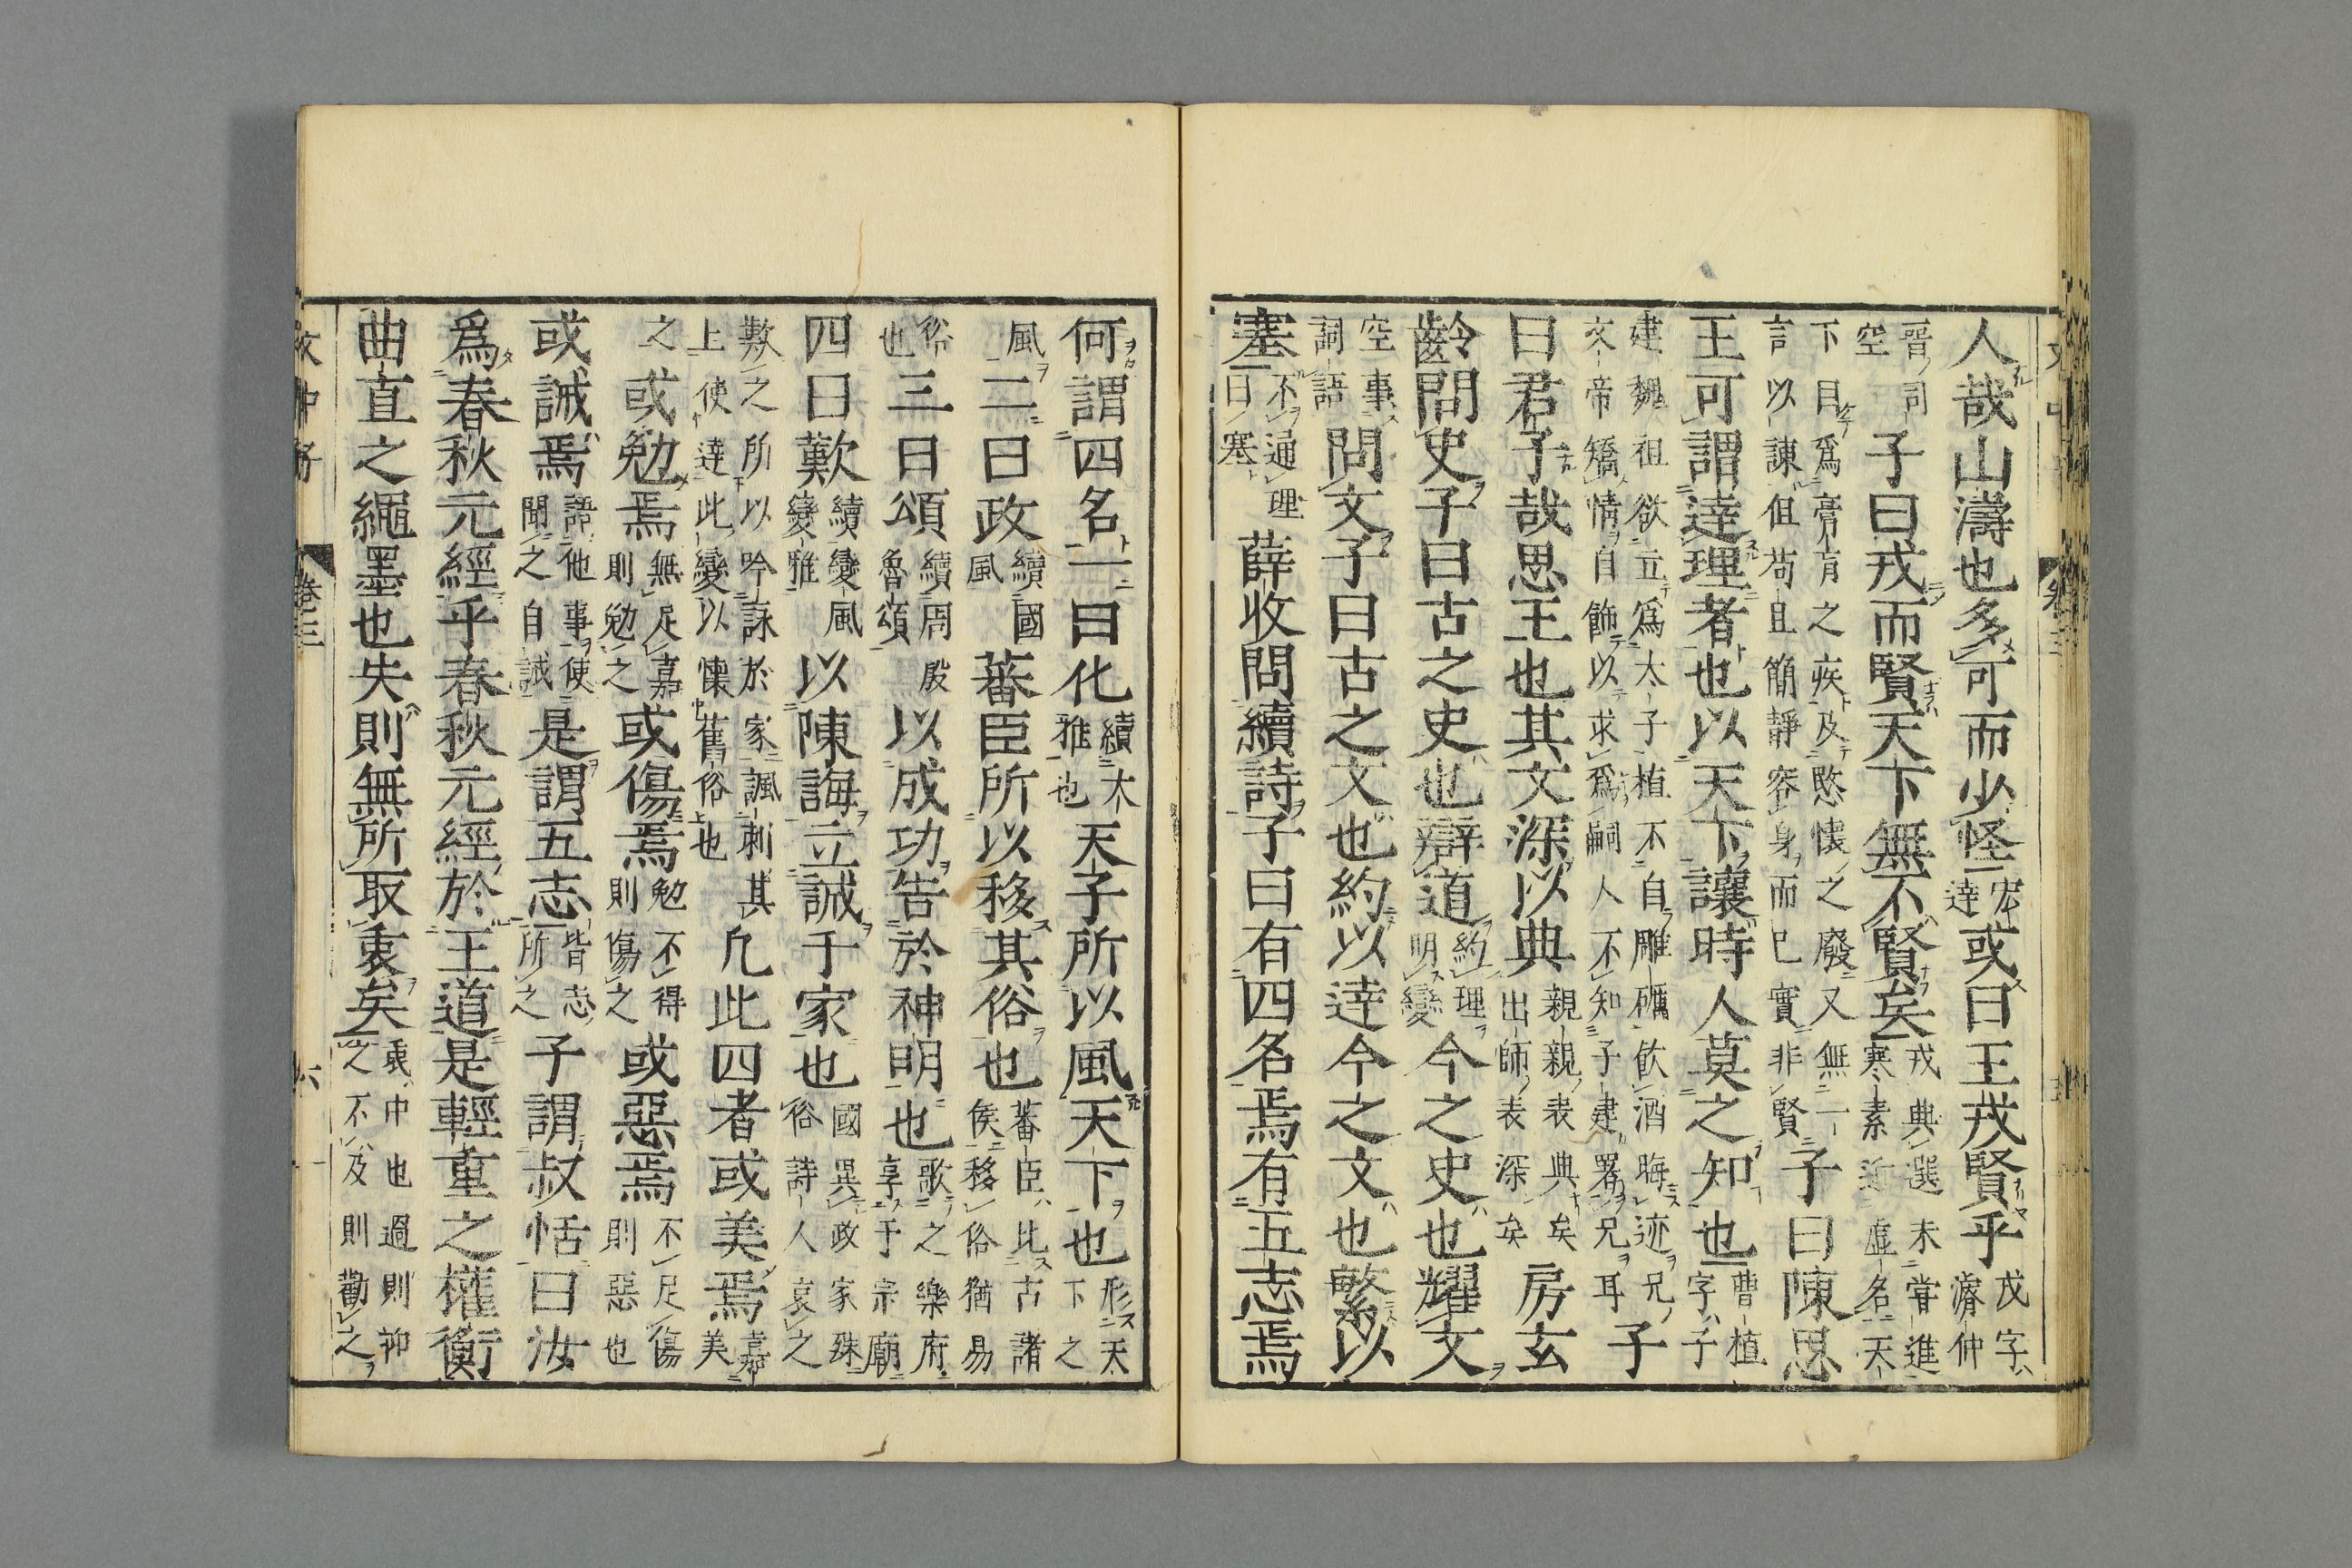 人哉山濤也多可而少怪宏達或曰王戎賢乎戎字濬仲
晉司空子曰戎而賢天下無不賢矣戎典選未嘗進寒素近虛名天
下目爲膏肓之疾及愍懷之廢又無一言以諫但苟且簡靜容身而已實非賢子曰陳思
王可謂達理者也以天下讓時人莫之知也曹植字子
建魏祖欲立爲太子植不自雕礪飲酒晦迹兄文帝矯情自飾以求爲嗣人不知子建署兄耳子
曰君子哉思王也其文深以典親親表典矣出師表深矣房玄
齡問史子曰古之史也辯道約理明變今之史也耀文
空事詞語問文子曰古之文也約以達今之文也繁以
塞不通理曰塞薛收問續詩子曰有四名焉有五志焉
何謂四名一曰化續大雅也天子所以風天下也形天下之
風二曰政續國風蕃臣所以移其俗也蕃臣比古諸侯移俗猶易
俗也三曰頌續周殷魯頌以成功告於神明也歌之樂府享于宗廟
四曰歎續變風變雅以陳誨立誡于家也國異政家殊俗詩人哀之
歎之所以吟詠於家諷刺其上使達此變以懷舊俗也凡此四者或美焉嘉美
之或勉焉無足嘉則勉之或傷焉勉不得則傷之或惡焉不足傷則惡也
或誡焉語他事使聞之自誡是謂五志皆志所之子謂叔恬曰汝
爲春秋元經乎春秋元經於王道是輕重之權衡
曲直之繩墨也失則無所取衷矣衷中也過則抑之不及則勸之
文中子 卷三 六